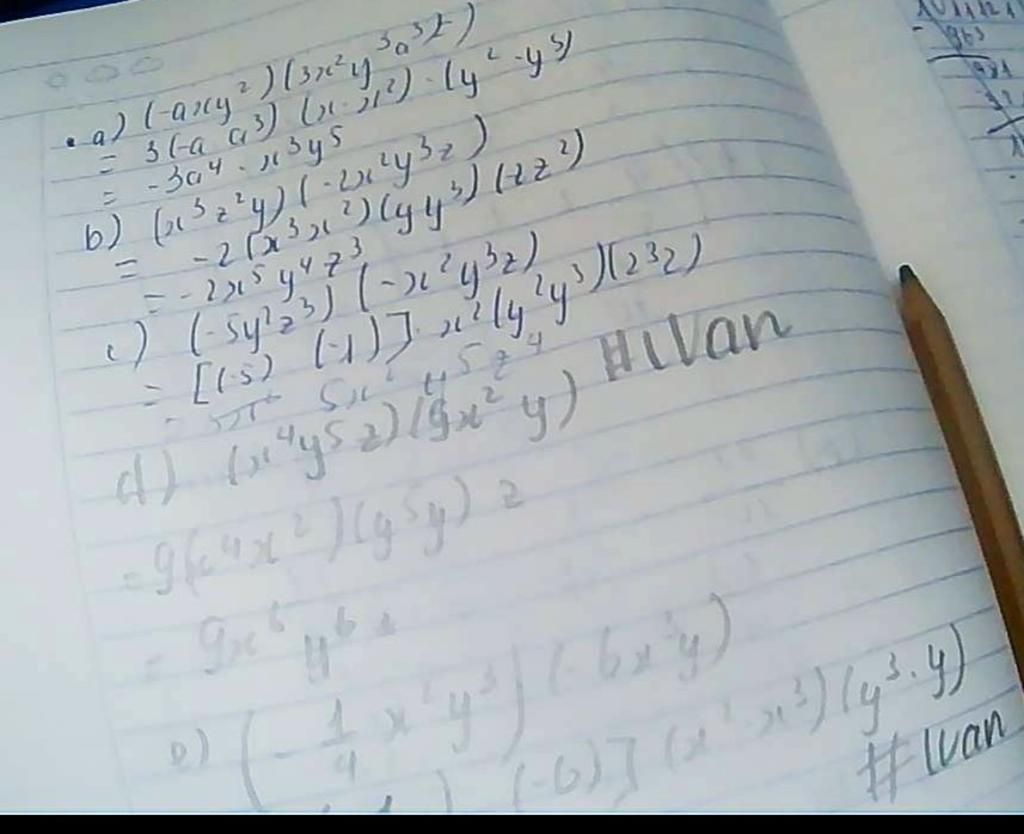 a) (-axy²)(3x²y³a³z)
= 3(-a a³) (x·x²)·(y²·y³)
= -3a⁴·x³y⁵
b) (x³z²y)(-2x²y³z)
= -2(x³x²)(yy³)(zz²)
= -2x⁵y⁴z³
c) (-5y²z³)(-x²y³z)
= [(-5) (-1)]·x²(y²y³)(z³z)
5x² y⁵z⁴ #Ivan
d) (x⁴y⁵z)(9x²y)
= 9(x⁴x²)(y⁵y) z
= 9x⁶ y⁶ z
e) (-1/4 x²y³)(-6x³y)
(-6)] (x²·x³)(y³·y)
#Ivan